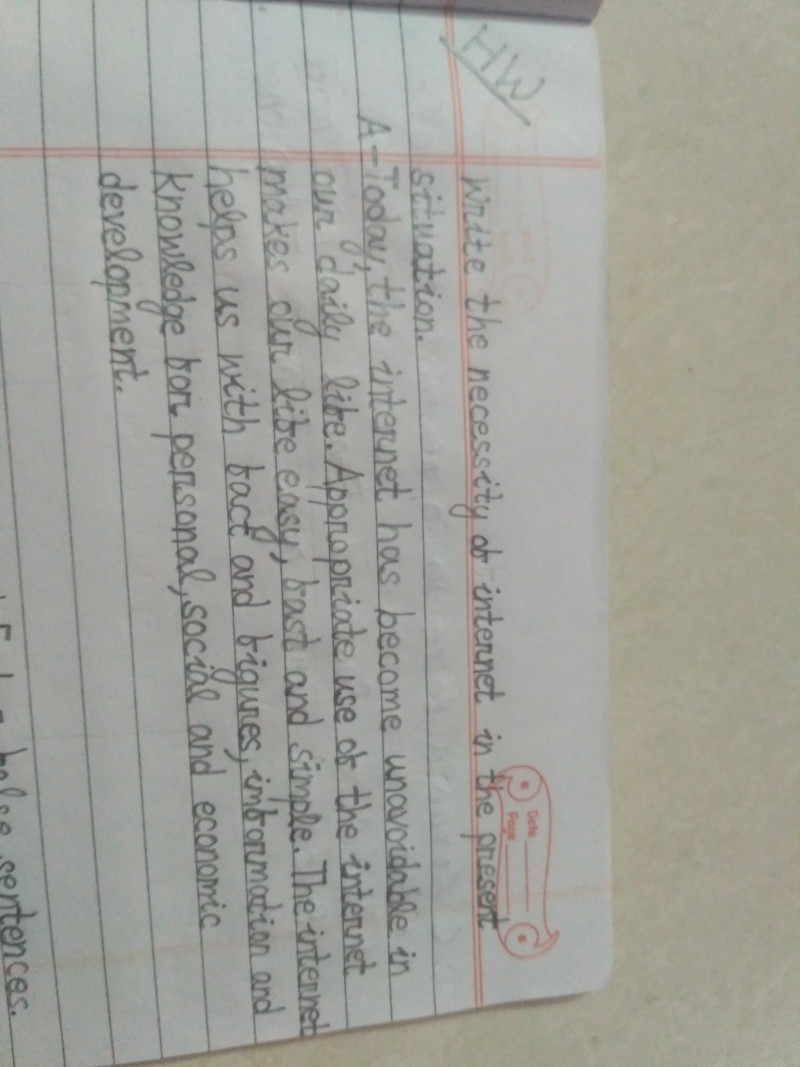 HW
Date
Page
Write the necessity of internet in the present
situation.
A-Today, the internet has become unavoidable in
our daily life. Appropriate use of the internet
makes our life easy, fast and simple. The internet
helps us with fact and figures, information and
knowledge for personal, social and economic
development.
false sentences.